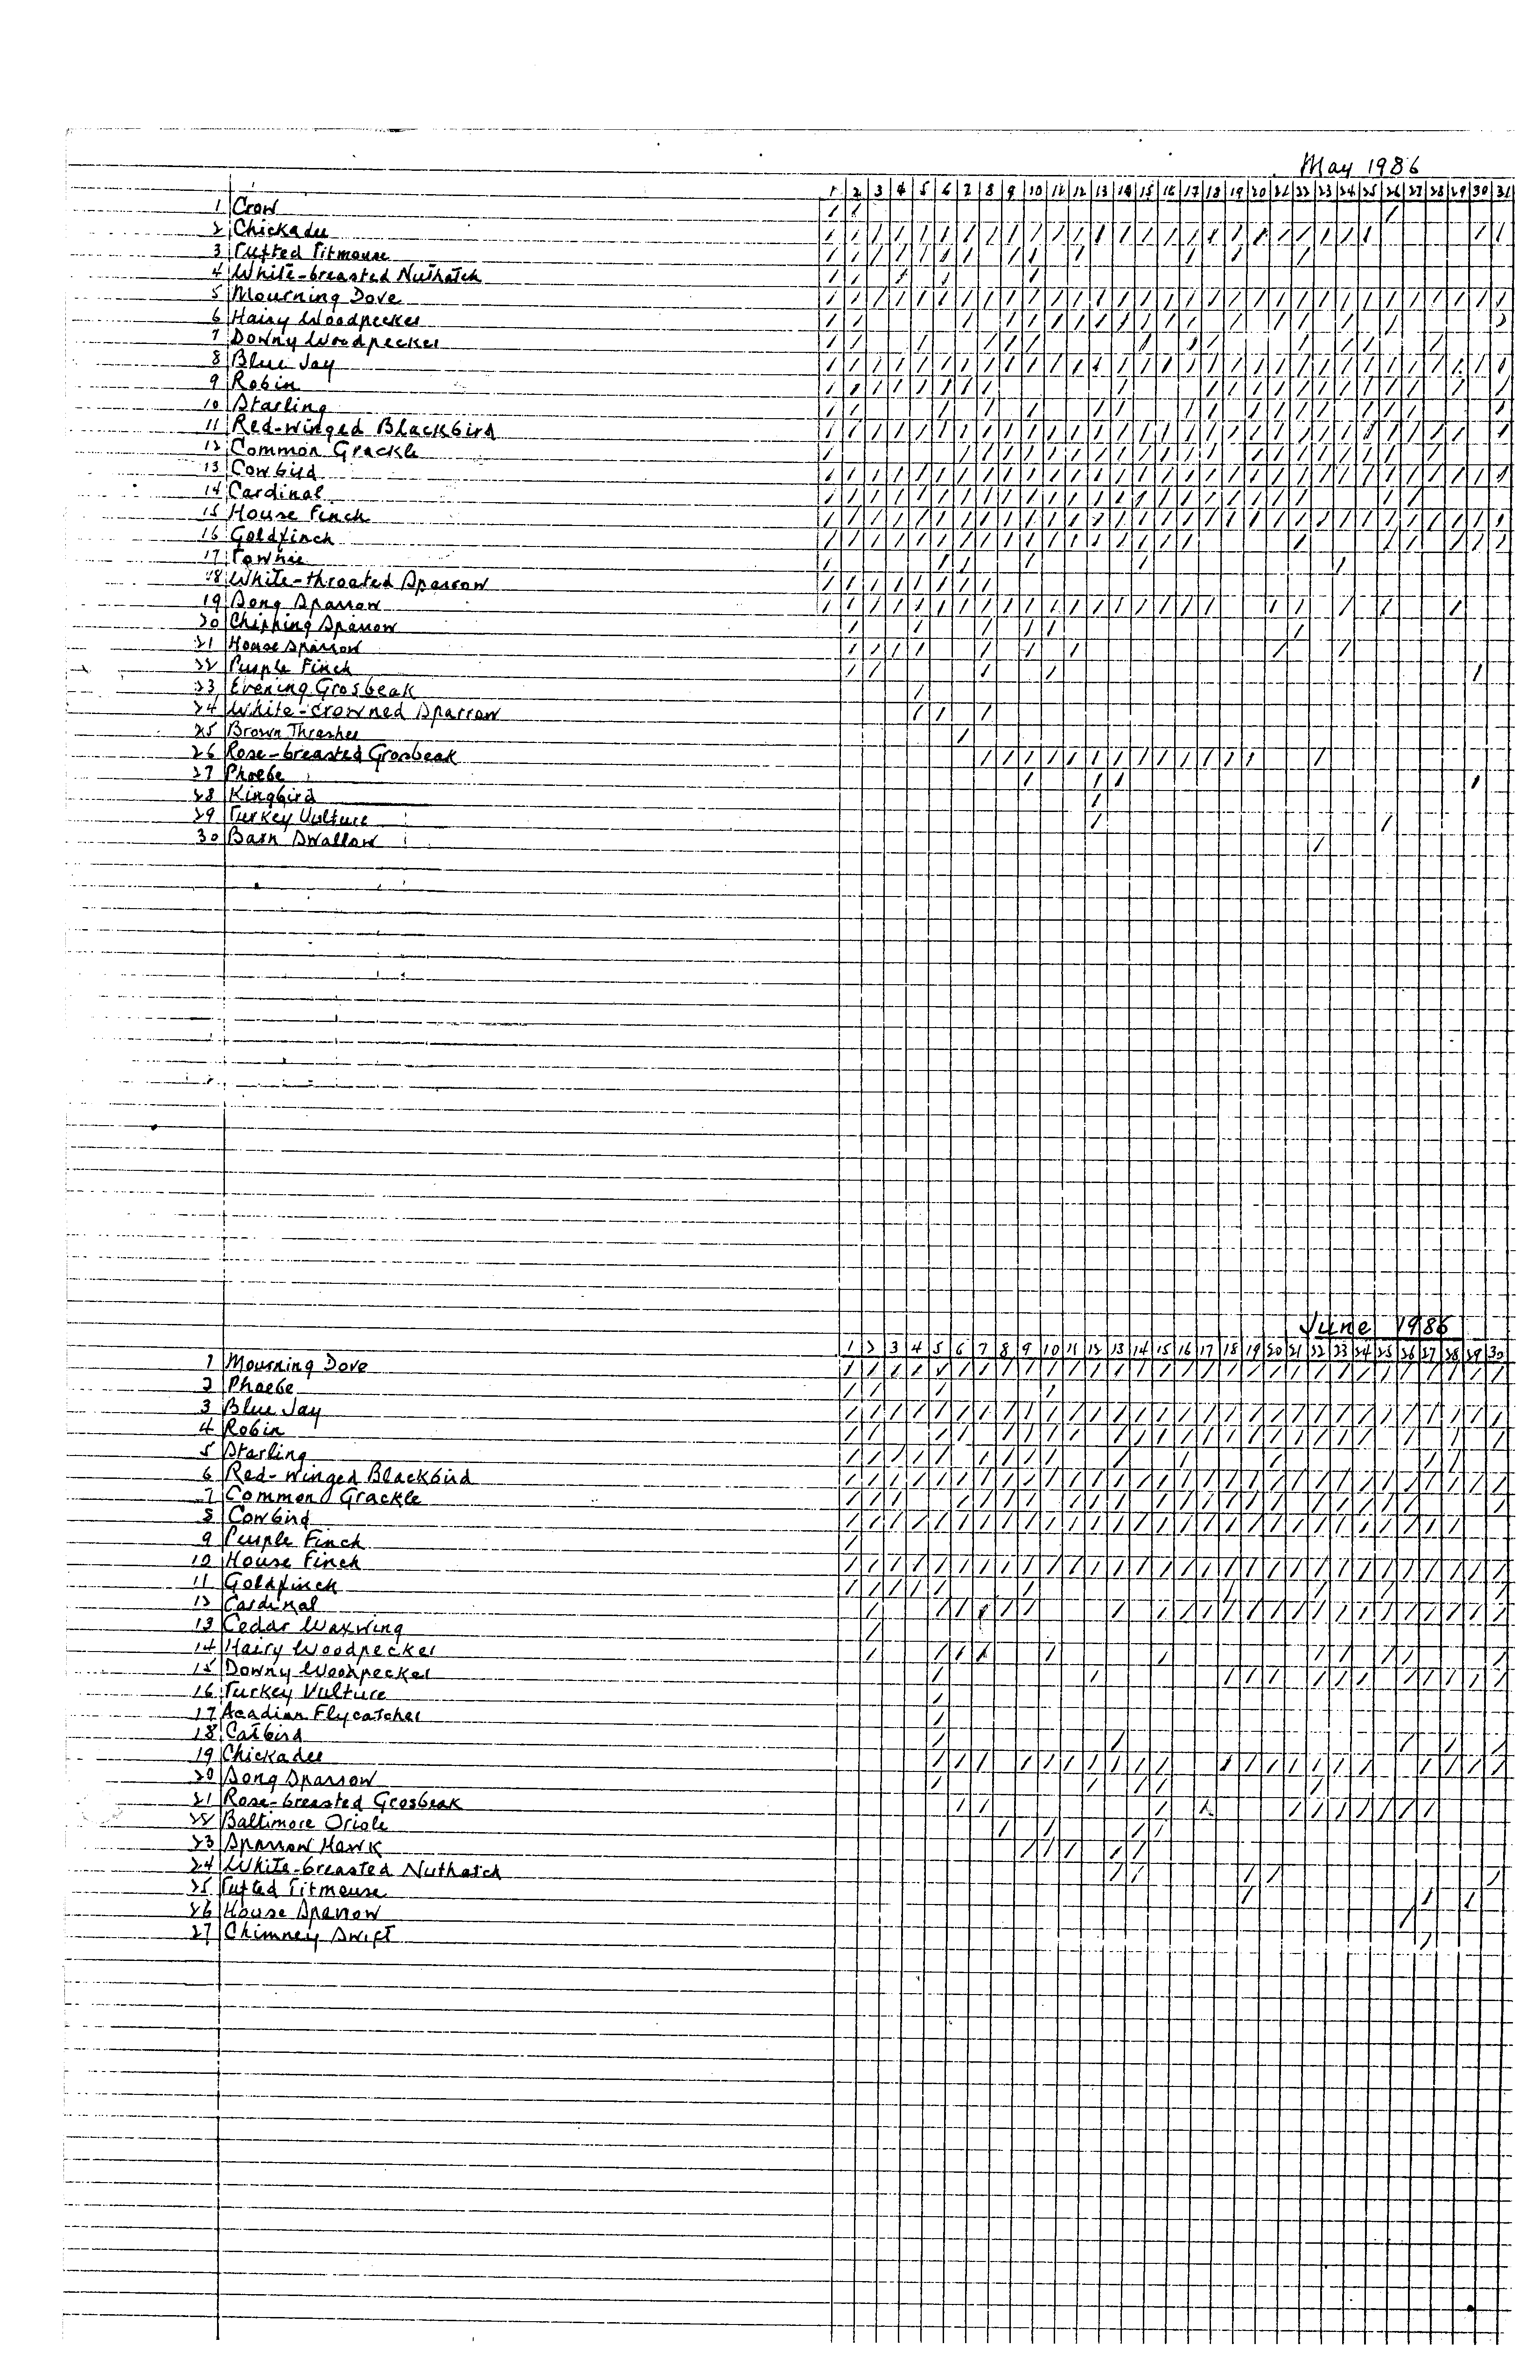 May 1986
1 2 3 4 5 6 7 8 9 10 11 12 13 14 15 16 17 18 19 20 21 22 23 24 25 26 27 28 29 30 31
1 Crow
2 Chickadee
3 Tufted Titmouse
4 White-breasted Nuthatch
5 Mourning Dove
6 Hairy Woodpecker
7 Downy Woodpecker
8 Blue Jay
9 Robin
10 Starling
11 Red-winged Blackbird
12 Common Grackle
13 Cowbird
14 Cardinal
15 House Finch
16 Goldfinch
17 Towhee
18 White-throated Sparrow
19 Song Sparrow
20 Chipping Sparrow
21 House Sparrow
22 Purple Finch
23 Evening Grosbeak
24 White-crowned Sparrow
25 Brown Thrasher
26 Rose-breasted Grosbeak
27 Phoebe
28 Kingbird
29 Turkey Vulture
30 Barn Swallow
June 1986
1 2 3 4 5 6 7 8 9 10 11 12 13 14 15 16 17 18 19 20 21 22 23 24 25 26 27 28 29 30
1 Mourning Dove
2 Phoebe
3 Blue Jay
4 Robin
5 Starling
6 Red-winged Blackbird
7 Common Grackle
8 Cowbird
9 Purple Finch
10 House Finch
11 Goldfinch
12 Cardinal
13 Cedar Waxwing
14 Hairy Woodpecker
15 Downy Woodpecker
16 Turkey Vulture
17 Acadian Flycatcher
18 Catbird
19 Chickadee
20 Song Sparrow
21 Rose-breasted Grosbeak
22 Baltimore Oriole
23 Sparrow Hawk
24 White-breasted Nuthatch
25 Tufted Titmouse
26 House Sparrow
27 Chimney Swift